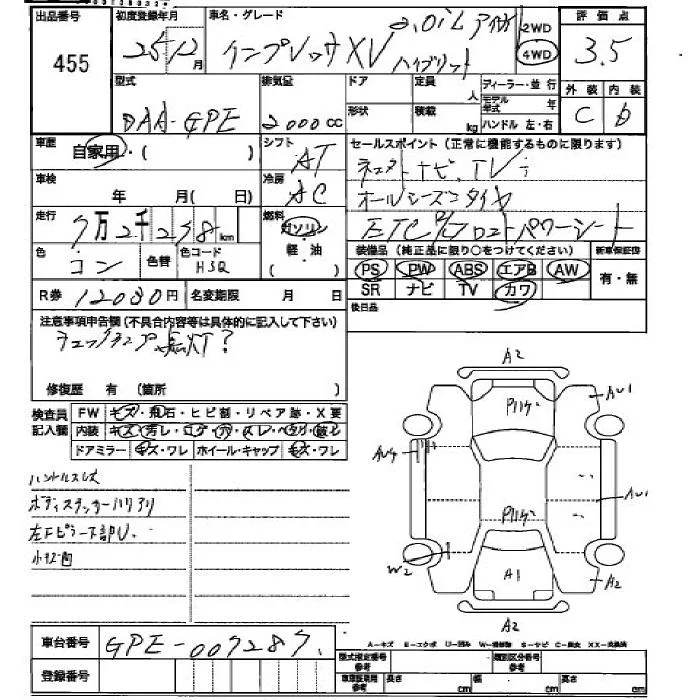 出品番号 初度登録年月 車名・グレード 評価点
455 25年12月 インプレッサXV ハイブリッド 2.0iL アイサイト 2WD 4WD 3.5
型式 排気量 ドア 定員 人 ディーラー・並行 外装 内装
形状 積載 kg モデル年式 年
DAA-GPE 2000cc ハンドル 左・右 C D
車歴 自家用・( ) シフト AT セールスポイント(正常に機能するものに限ります)
車検 年 月( 日) 冷房 AC
ナビ、TV
オールシーズンタイヤ
走行 7万2千238km 燃料 ガソリン 軽・油 ( )
ETC パワーシート
色 コン 色替 色コード H3Q
装備品(純正品に限り○をつけてください) 新車保証書
PS PW ABS エアB AW 有・無
R券 12080円 名変期限 月 日 SR ナビ TV カワ
後日品
注意事項申告欄(不具合内容等は具体的に記入して下さい)
チェックランプ点灯?
修復歴 有 (箇所 )
検査員記入欄 FW キズ・飛石・ヒビ割・リペア跡・X要
内装 キズ・汚レ・コゲ・穴・スレ・ベタツキ・破レ
ドアミラー キズ・ワレ ホイール・キャップ キズ・ワレ
ハンドルスレ
ボディステッカーハリアリ
左Fピラー下部U.
小キズ凹
A2
AU1
Pハゲ
AU4
AU1
Pハゲ
W2
A1
A2
A2
車台番号 GPE-007287
A-キズ E-エクボ U-凹み W-補修跡 S-サビ C-腐食 XX-交換済
登録番号
型式指定番号 参考 類別区分番号 参考
車庫証明用 参考 長さ cm 幅 cm 高さ cm